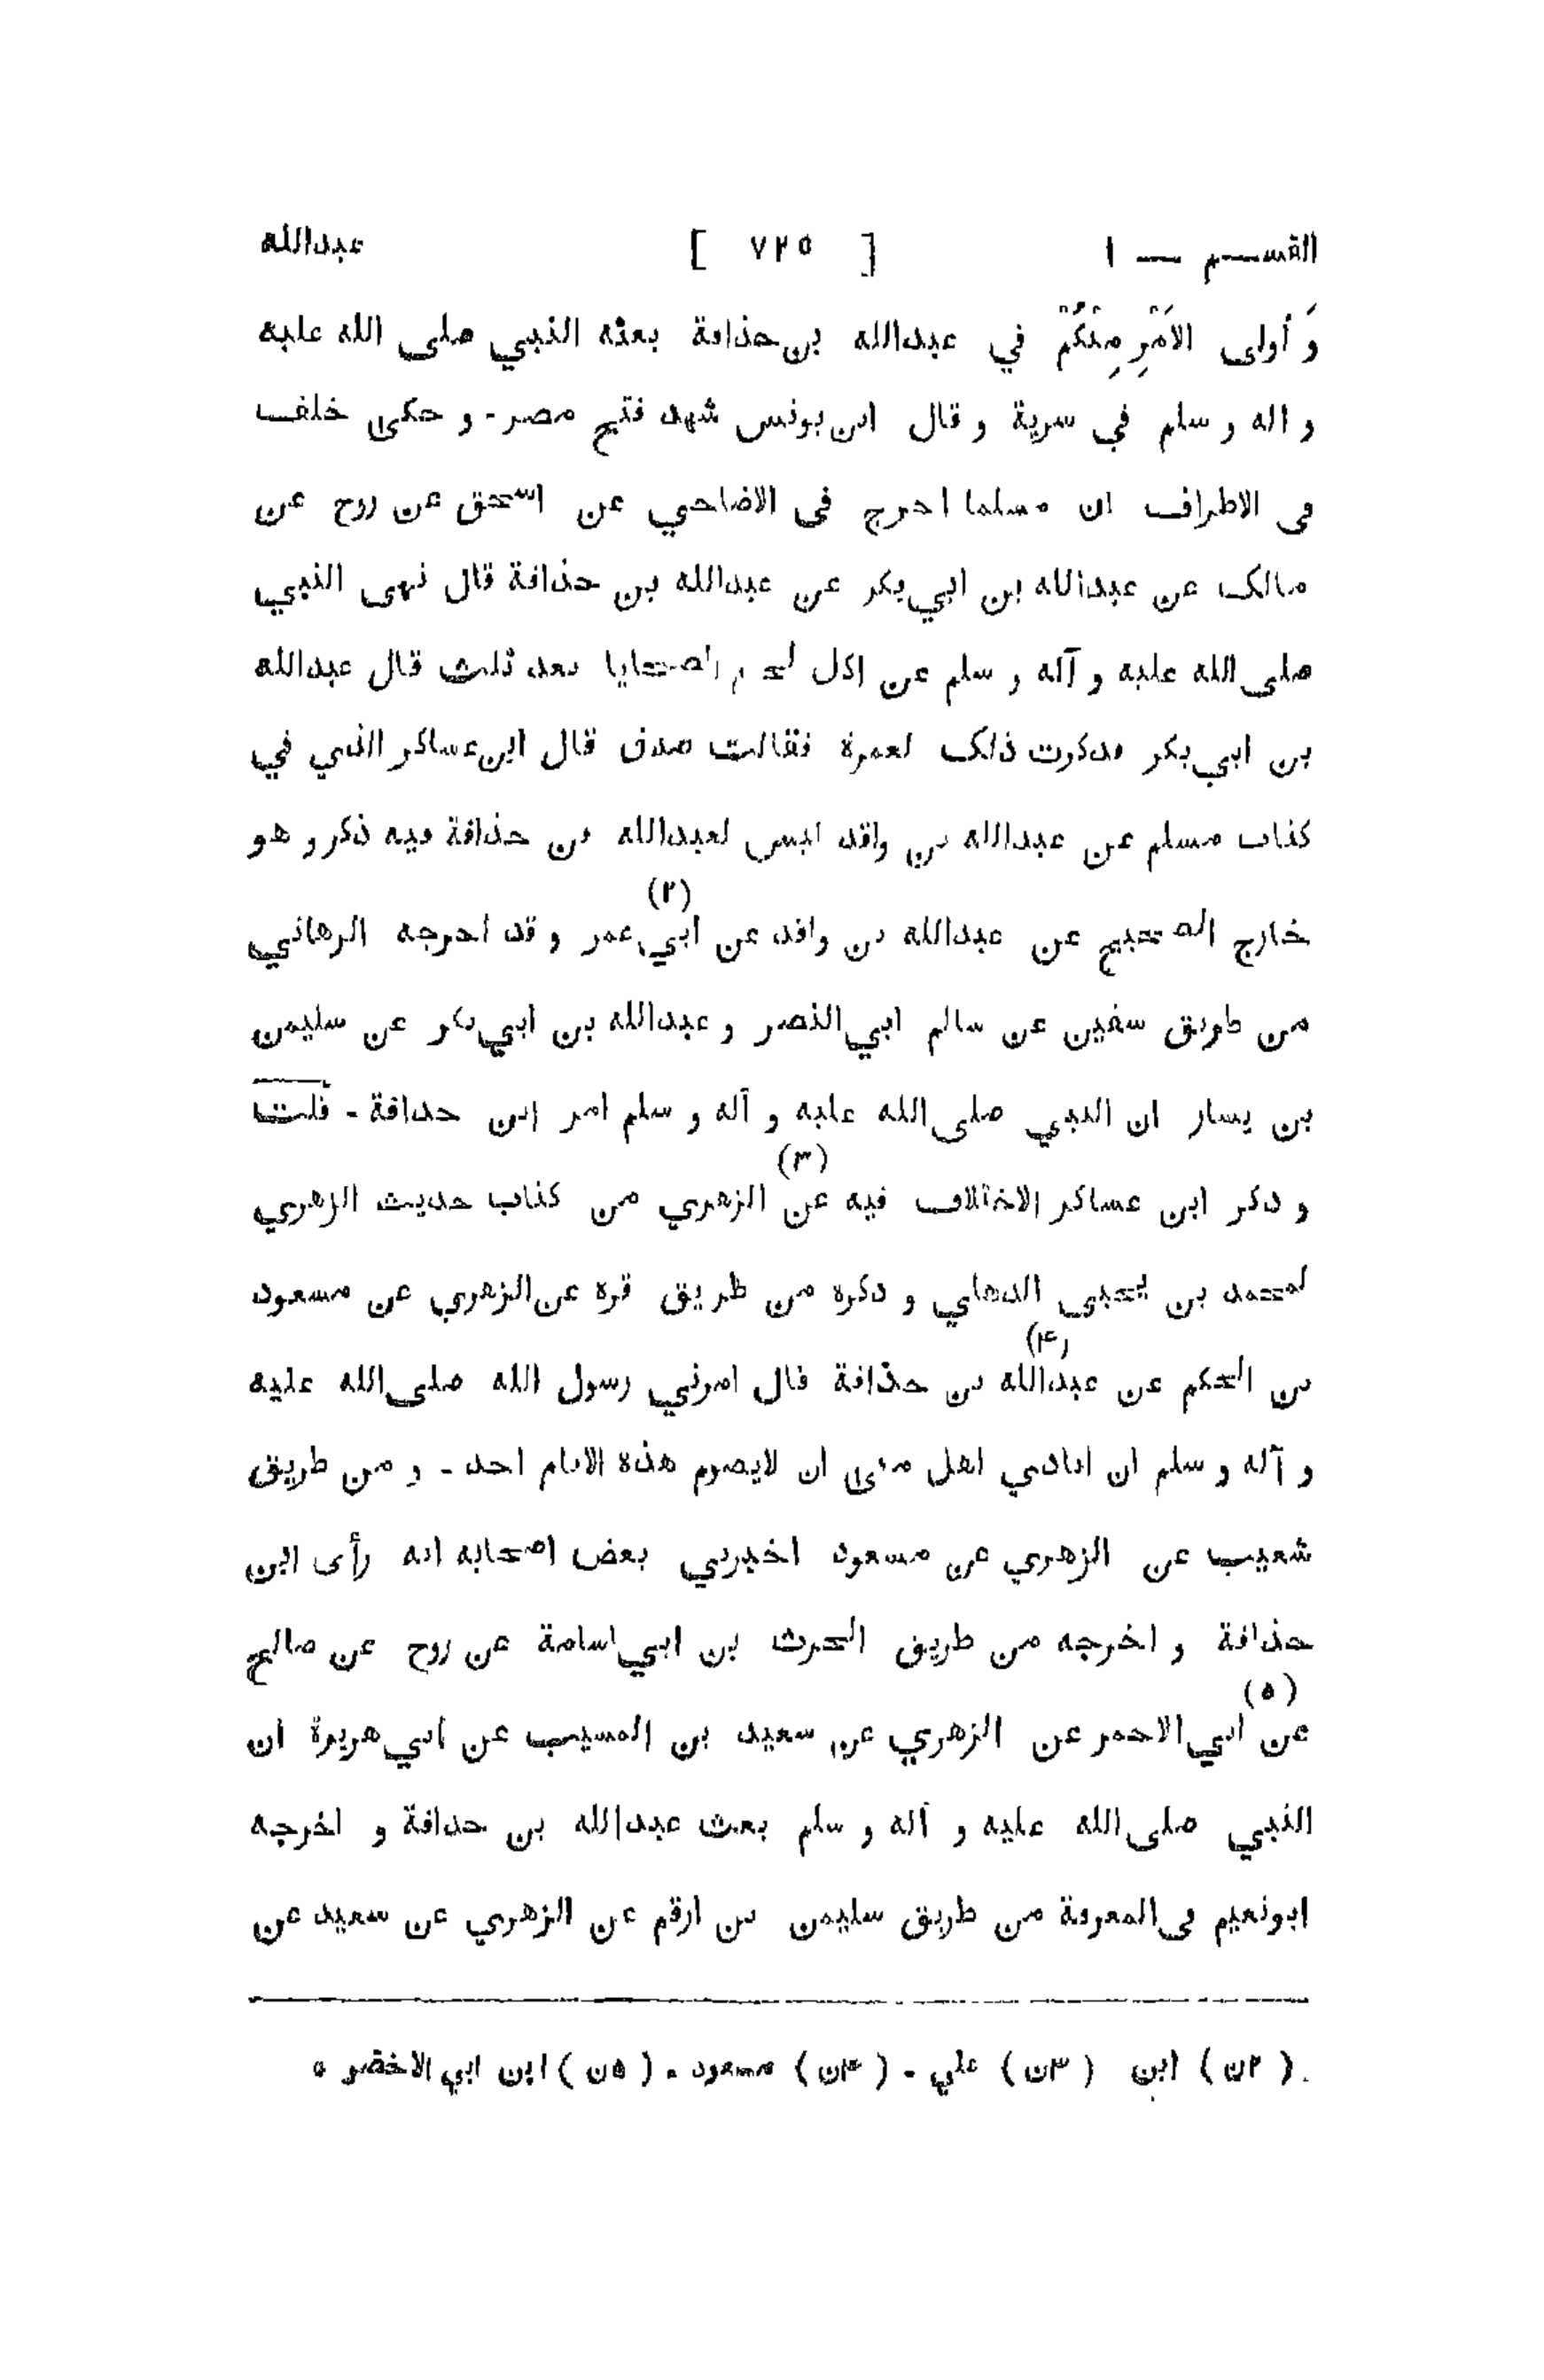 القسم — ١ [ ٧٢٥ ] عبدالله
وَ أُولى الأَمْرِ مِنْكُمْ في عبدالله بن حذافة بعثه النبي صلى الله عليه
و اله و سلم في سرية و قال ابن يونس شهد فتح مصر - و حكى خلف
فى الاطراف ان مسلما اخرج فى الاضاحي عن اسحق عن روح عن
مالك عن عبدالله بن ابي بكر عن عبدالله بن حذافة قال نهى النبي
صلى الله عليه و آله و سلم عن اكل لحوم الضحايا بعد ثلث قال عبدالله
بن ابي بكر فذكرت ذلك لعمرة فقالت صدق قال ابن عساكر الذي في
كتاب مسلم عن عبدالله بن واقد ليس لعبدالله بن حذافة فيه ذكر و هو
خارج الصحيح عن عبدالله بن واقد عن ابي (٢) عمر و قد اخرجه الرهاني
من طريق سفين عن سالم ابي النضر و عبدالله بن ابي بكر عن سليمن
بن يسار ان النبي صلى الله عليه و آله و سلم امر ابن حذافة - قلت
و ذكر ابن عساكر الاختلاف فيه عن (٣) الزهري من كتاب حديث الزهري
لمحمد بن يحيى الذهلي و ذكره من طريق قرة عن الزهري عن مسعود
بن الحكم عن عبدالله (۴) بن حذافة قال امرني رسول الله صلى الله عليه
و آله و سلم ان انادي اهل منى ان لايصوم هذه الايام احد - و من طريق
شعيب عن الزهري عن مسعود اخبرني بعض اصحابه انه رأى ابن
حذافة و اخرجه من طريق الحرث بن ابي اسامة عن روح عن صالح
عن (٥) ابي الاحمر عن الزهري عن سعيد بن المسيب عن ابي هريرة ان
النبي صلى الله عليه و آله و سلم بعث عبدالله بن حذافة و اخرجه
ابونعيم فى المعرفة من طريق سليمن بن ارقم عن الزهري عن سعيد عن
( ٢ن ) ابن ( ٣ن ) علي - ( ۴ن ) مسعود - ( ٥ن ) ابن ابي الاخضر ٥